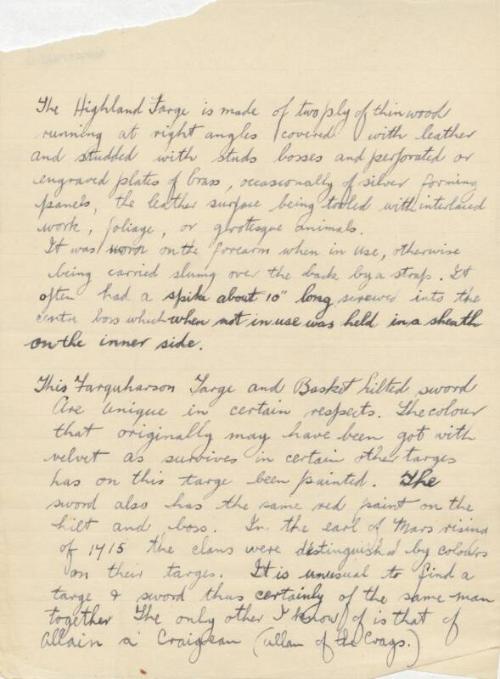 The Highland Targe is made of two ply of thin wood
running at right angles covered with leather
and studded with studs bosses and perforated or
engraved plates of brass, occasionally of silver forming
panels, the leather surface being tooled with interlaced
work, foliage, or grotesque animals.
It was worn on the forearm when in use, otherwise
being carried slung over the back by a strap. It
often had a spike about 10" long screwed into the
centre boss which when not in use was held in a sheath
on the inner side.
This Farquharson Targe and Basket hilted sword
are unique in certain respects. The colour
that originally may have been got with
velvet as survives in certain other targes
has on this targe been painted. The
sword also has the same red paint on the
hilt and boss. In the earl of Mars rising
of 1715 the clans were distinguished by colours
on their targes. It is unusual to find a
targe & sword thus certainly of the same man
together The only other I know of is that of
Allain a Craigean (allan of the Crags.)